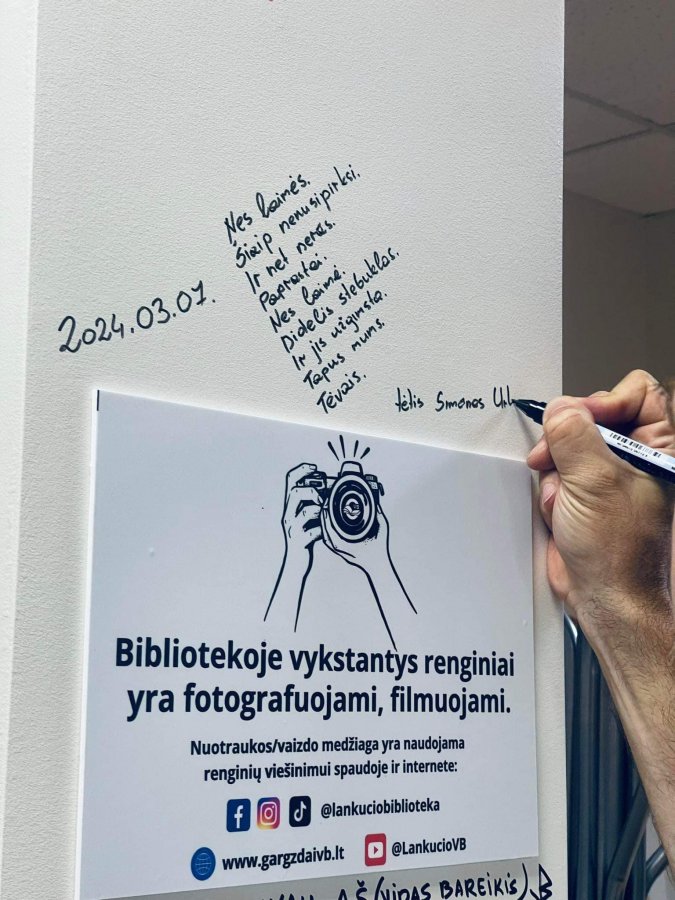 Nes laimės.
Šiaip nenusipirksi.
Ir net neras.
Paprastai.
Nes laimė.
Didelis stebuklas.
Ir jis užgimsta.
Tapus mums.
Tėvais.
2024.03.07.
tėtis Simonas
Bibliotekoje vykstantys renginiai
yra fotografuojami, filmuojami.
Nuotraukos/vaizdo medžiaga yra naudojama
renginių viešinimui spaudoje ir internete:
@lankuciobiblioteka
www.gargzdaivb.lt @LankucioVB
AŠ (VIDAS BAREIKIS)